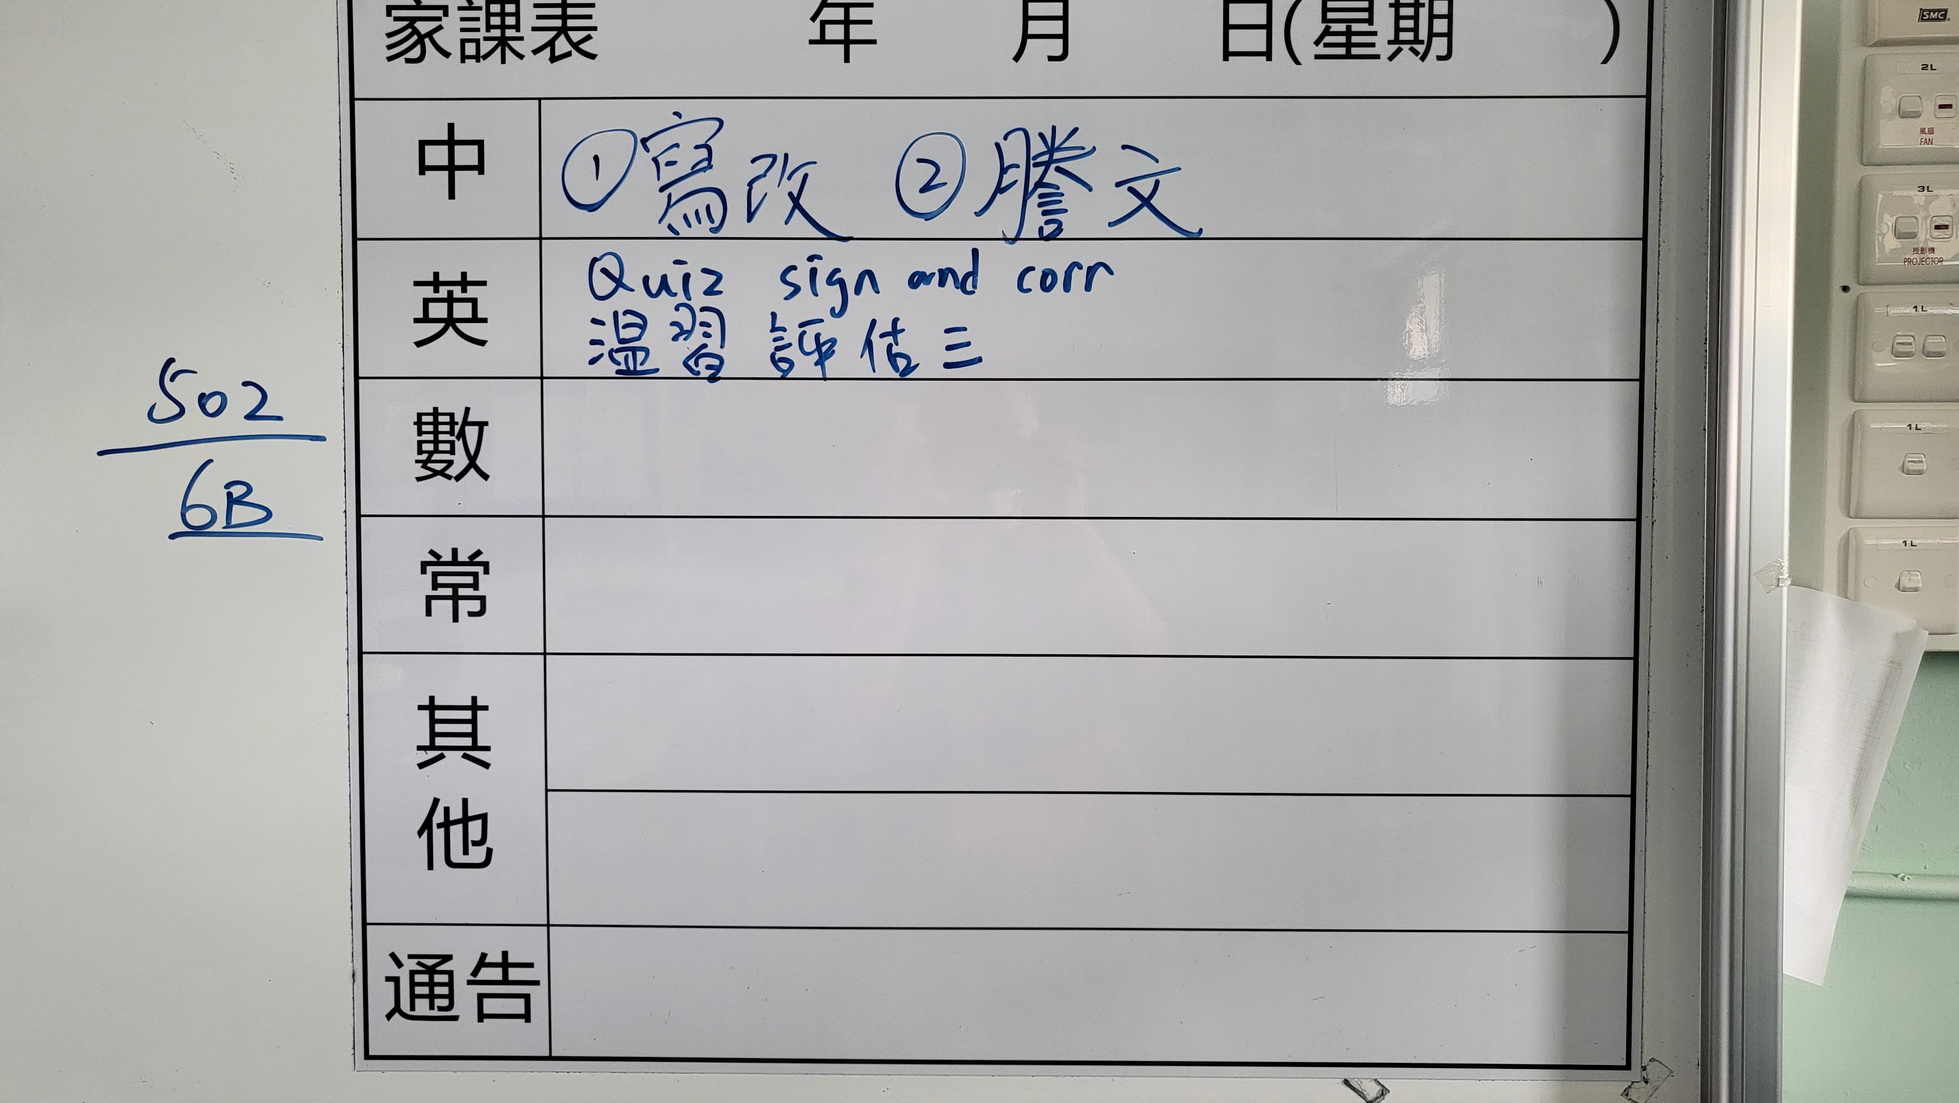 家課表 年 月 日(星期 )
中 ①寫改 ②謄文
英 Quiz sign and corr
温習 評估三
數
常
其他
通告
502
6B
SMC
2L
風扇
FAN
3L
投影機
PROJECTOR
1L
1L
1L